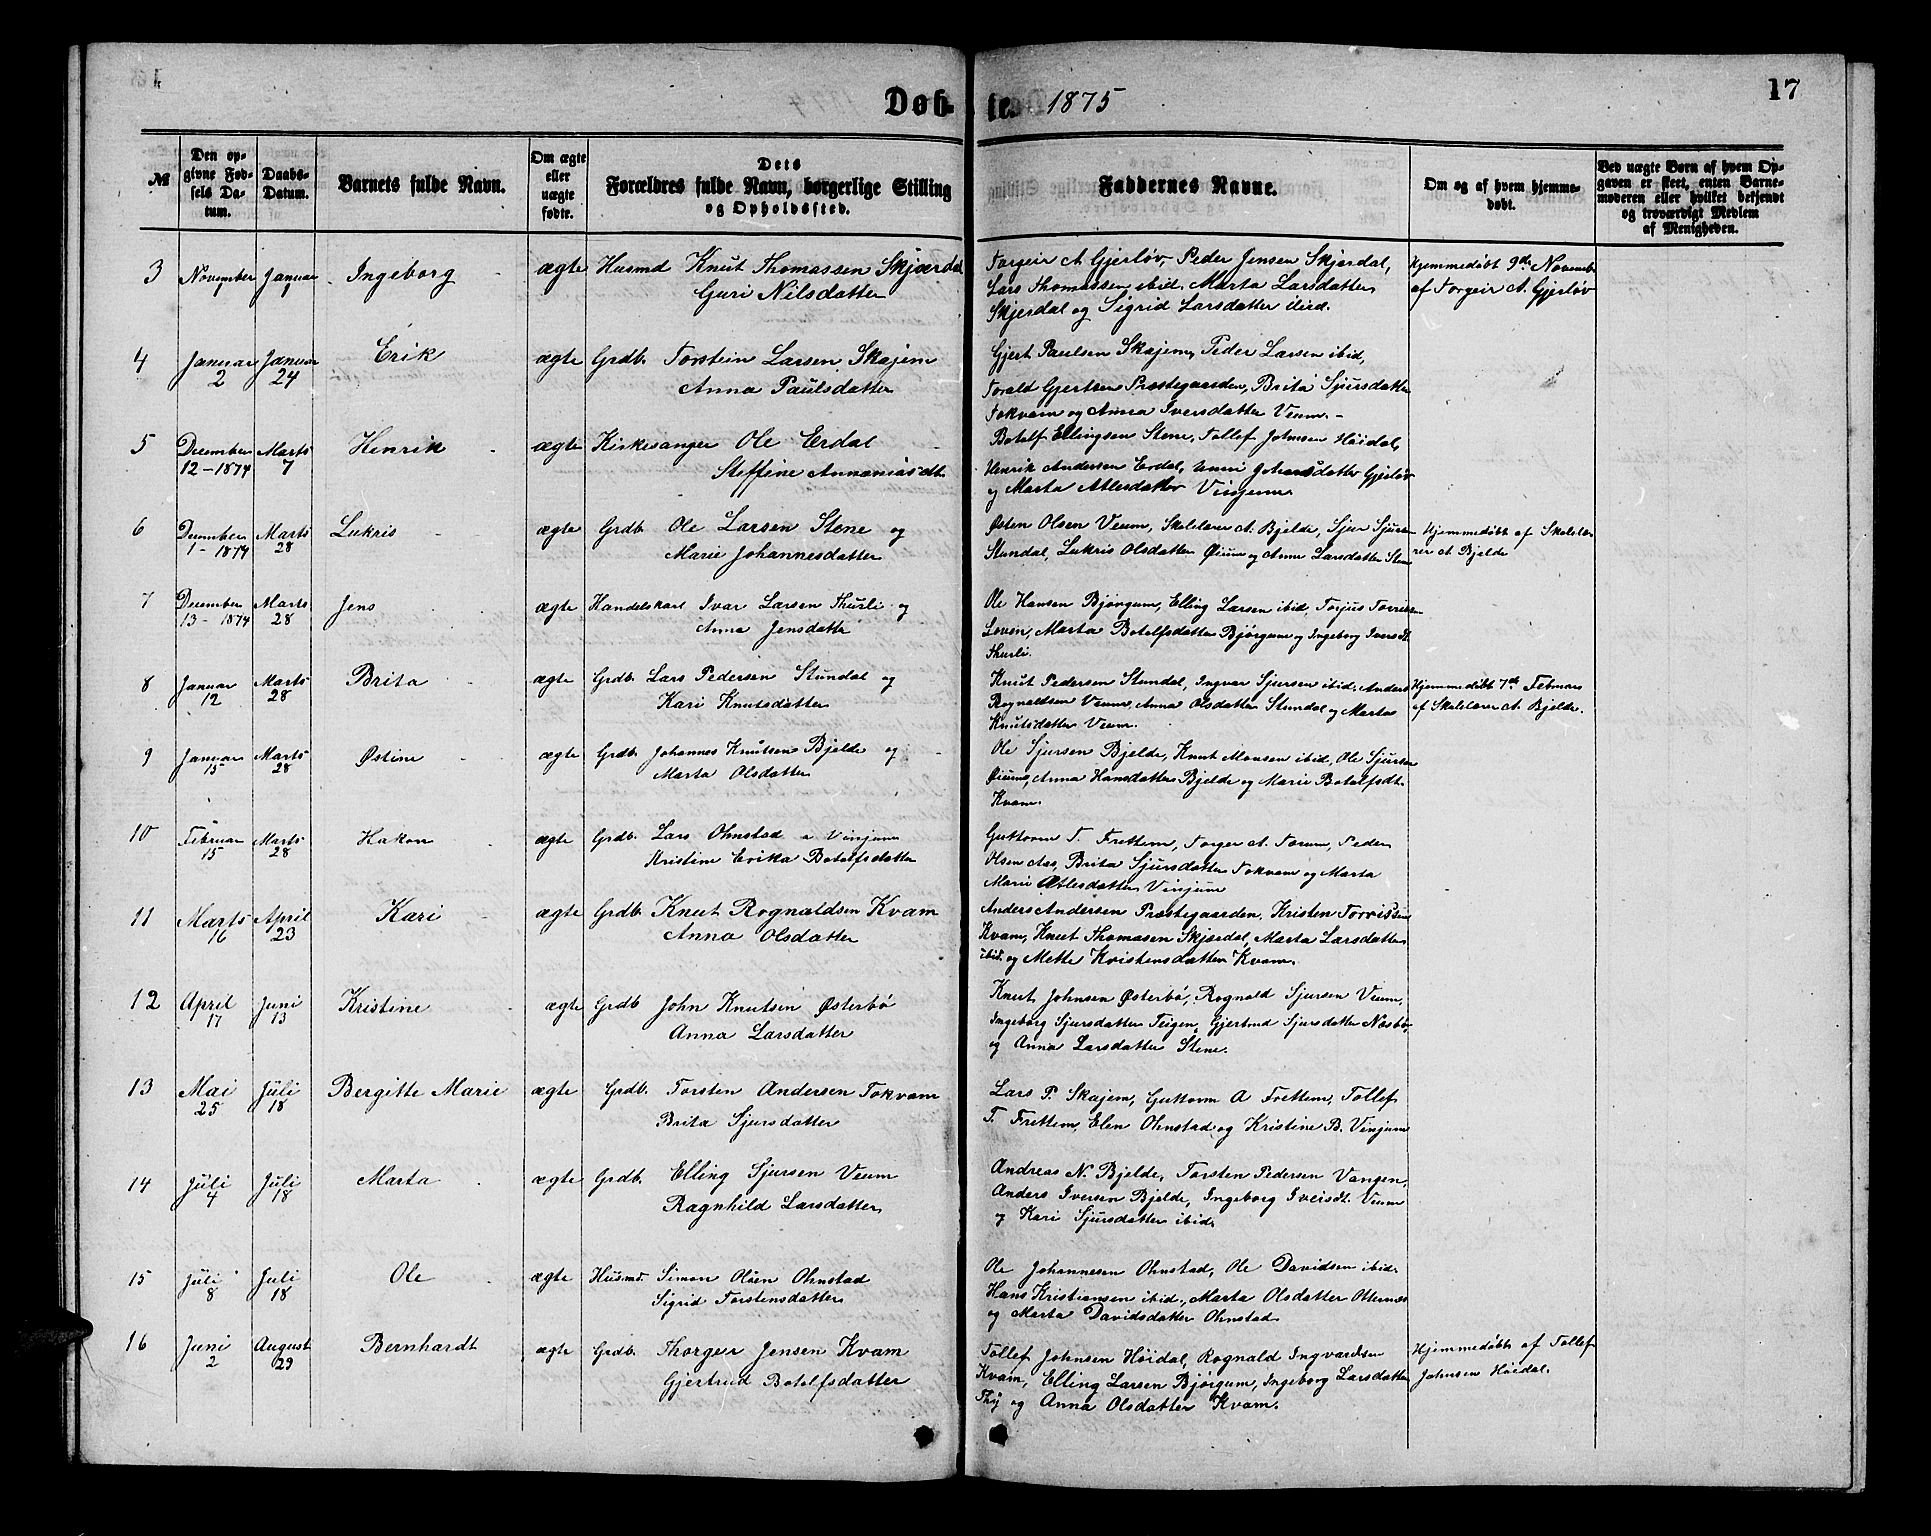 Døb- te. 1875
17
№
Den opgivne Fødsels Datum.
Daabs-Datum.
Barnets fulde Navn.
Om ægte eller uægte født.
Dets Forældres fulde Navn, borgerlige Stilling og Opholdssted.
Faddernes Navne.
Om og af hvem hjemmedøbt.
Ved uægte Børn af hvem Opgaven er skeet, enten Barnemoderen eller hvilket bekjendt og troværdigt Medlem af Menigheden.
3 November Januar Ingeborg ægte Husmd Knut Thomassen Skjærdal
Guri Nilsdatter
Torgeir A Gjerløv, Peder Jensen Skjerdal,
Lars Thomassen ibid. Marta Larsdatter
Skjerdal og Sigrid Larsdatter ibid.
Hjemmedøbt 9de Novembr
af Torgeir A. Gjerløv
4 Januar 2 Januar 24 Erik ægte Grdb. Torstein Larsen Skajem
Anna Paulsdatter
Gjert Paulsen Skajem, Peder Larsen ibid,
Torald Gjertsen Præstegaarden, Brita Sjursdatter
Tokvam og Anna Iversdatter Veum. -
5 December 12 - 1874 Marts 7 Henrik ægte Kirkesanger Ole Erdal
Steffine Annaniasdt.
Botolf Ellingsen Stene, Tollef Johnsen Höidal,
Henrik Andersen Erdal, Unni Johansdatter Gjerløv
og Marta Atlesdatter Vinjum.
6 December 1 - 1874 Marts 28 Lukris ægte Grdb. Ole Larsen Stene og
Marie Johannesdatter
Østen Olsen Veum, Skolelærer A. Bjelde, Sjur Sjursen
Stundal, Lukris Olsdatter Øium og Anna Larsdatter Stene
Hjemmedøbt af Skolelæ-
rer A Bjelde
7 December 13 - 1874 Marts 28 Jens ægte Handelskarl Ivar Larsen Thurli og
Anna Jensdatter
Ole Hansen Bjørgum, Elling Larsen ibid, Torjus
Loven, Marta Botolfsdatter Bjørgum og Ingeborg Iversdt.
Thurli.
8 Januar 12 Marts 28 Brita ægte Grdb. Lars Pedersen Stundal og
Kari Knutsdatter
Knut Pedersen Stundal, Ingvar Sjursen ibid. Anders
Rognaldsen Veum, Anna Olsdatter Stundal og Marta
Knutsdatter Veum.
Hjemmedöbt 7de Februar
af Skolelærer A. Bjelde.
9 Januar 15 Marts 28 Østine ægte Grdb. Johannes Knutsen Bjelde og
Marta Olsdatter
Ole Sjursen Bjelde, Knut Monsen ibid, Ole Sjursen
Øium, Anna Hansdatter Bjelde og Marie Botolfsdt.
Kvam.
10 Februar 15 Marts 28 Hakon ægte Grdb. Lars Ohnstad Vinjum
Kristine Erika Botolfsdatter
Guttorm T. Frettem, Torger A. Torum, Peder
Olsen Aas, Brita Sjursdatter Tokvam og Marta
Marie Atlesdatter Vinjum
11 Marts 16 April 23 Kari ægte Grdb. Knut Rognaldsen Kvam
Anna Olsdatter
Anders Andersen Præstegaarden, Kristen Torvissen
Kvam, Knut Thomasen Skjærdal, Marta Larsdatter
ibid. og Mette Kristensdatter Kvam.
12 April 17 Juni 13 Kristine ægte Grdb John Knutsen Østerbö
Anna Larsdatter
Knut Johnsen Østerbö, Rognald Sjursen Veum,
Ingeborg Sjursdatter Teigen, Gjertrud Sjursdatter Næsbø,
og Anna Larsdatter Stene.
13 Mai 25 Juli 18 Bergitte Marie ægte Grdb. Torsten Andersen Tokvam
Brita Sjursdatter
Lars P. Skajem, Guttorm A Frettem, Tollef
T. Frettem, Elen Ohnstad og Kristine B. Vinjum
14 Juli 4 Juli 18 Marta ægte Grdb. Elling Sjursen Veum
Ragnhild Larsdatter
Andreas N. Bjelde, Torsten Pedersen Vangen,
Anders Iversen Bjelde, Ingeborg Iversdt. Veum
og Kari Sjursdatter ibid.
15 Juli 8 Juli 18 Ole ægte Husmd. Simon Olsen Ohnstad
Sigrid Torstensdatter
Ole Johannesen Ohnstad, Ole Davidsen ibid.
Hans Kristiansen ibid., Marta Olsdatter Otternæs
og Marta Davidsdatter Ohnstad
16 Juni 2 August 29 Bernhardt ægte Grdb. Thorger Jensen Kvam
Gjertrud Botolfsdatter
Tollef Johnsen Höidal, Rognald Ingvardsen
Kvam, Elling Larsen Bjørgum, Ingeborg Larsdatter
Thy og Anna Olsdatter Kvam.
Hjemmedøbt af Tollef
Johnsen Höidal.